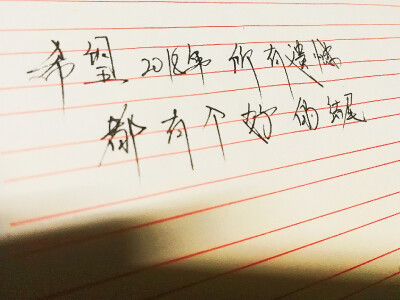 希望2018年所有遗憾
都有个好的